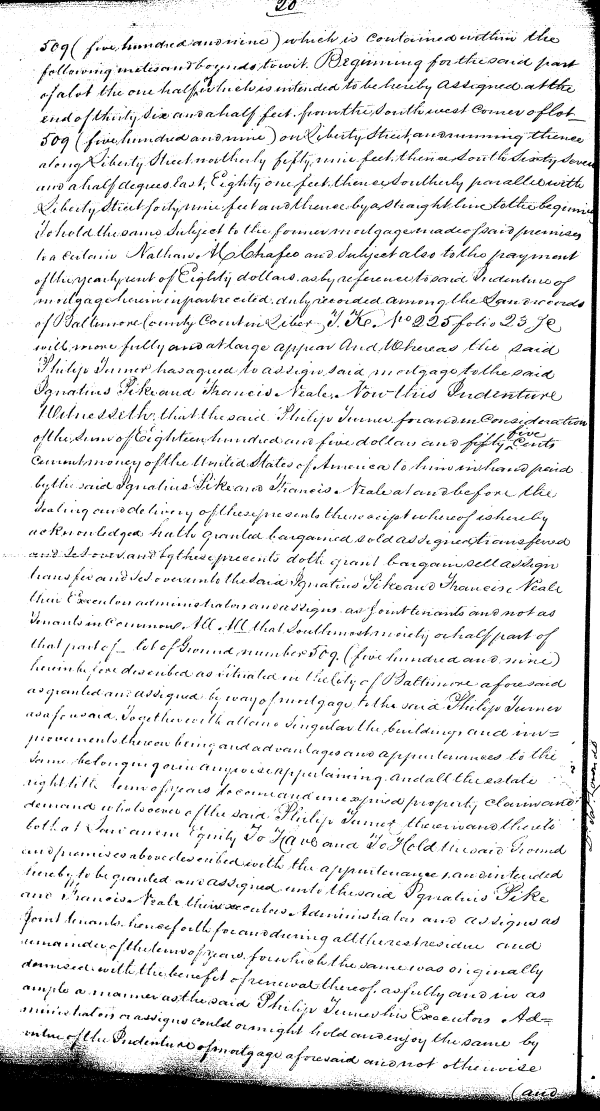 20
509 (five hundred and nine) which is contained within the
following metes and bounds, to wit. Beginning for the said part
of a lot the one half of which is intended to be hereby assigned at the
end of thirty six and a half feet from the South west corner of lot
509 (five hundred and nine) on Liberty Street, and running thence
along Liberty Street northerly fifty nine feet, thence South Sixty seven
and a half degrees East, Eighty one feet, thence Southerly parallel with
Liberty Street forty nine feet and thence by a straight line to the beginning
To hold the same subject to the former mortgage made of said premises
to a certain Nathan M. Chafeo and subject also to the payment
of the yearly rent of Eighty dollars as by reference to said Indenture of
mortgage herein in part recited, duly recorded among the Land records
of Baltimore County Court in Liber T. K. No 225 folio 23 &c
will more fully and at large appear And Whereas the said
Philip Turner has agreed to assign said mortgage to the said
Ignatius Pike and Francis Neale, Now this Indenture
Witnesseth, that the said Philip Turner for and in consideration
of the sum of Eighteen hundred and five dollars and fifty five cents
current money of the United States of America to him in hand paid
by the said Ignatius Pike and Francis Neale at and before the
sealing and delivery of these presents the receipt whereof is hereby
acknowledged hath granted bargained sold assigned transfered
and set over and by these presents doth grant bargain sell assign
transfer and set over unto the said Ignatius Pike and Francis Neale
their Executors administrators and assigns as Joint tenants and not as
Tenants in common, All All that Southmost moiety or half part of
that part of lot of Ground number 509. (five hundred and nine)
herein before described as situated in the City of Baltimore aforesaid
as granted and assigned by way of mortgage to the said Philip Turner
as aforesaid Together with all and singular the buildings and im=
provements thereon being and advantages and appurtenances to the
same belonging or in any wise appertaining, and all the estate
right title term of years to come and unexpired property claim and
demand whatsoever of the said Philip Turner, therein and thereto
both at Law and in Equity To Have and To Hold the said Ground
and premises above described with the appurtenances, and intended
hereby to be granted and assigned unto the said Ignatius Pike
and Francis Neale their executors Administrators and assigns as
Joint tenants, henceforth for and during all the rest residue and
remainder of the term of years, for which the same was originally
demised with the benefit of renewal thereof, as fully and in as
ample a manner as the said Philip Turner his Executors Ad=
ministrators or assigns could or might hold and enjoy the same by
virtue of the Indenture of mortgage aforesaid and not otherwise
(and